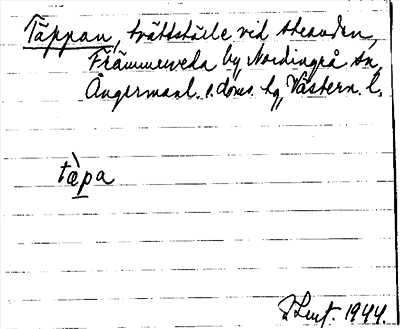 Täppan, tvättställe vid stranden,
Främmerveda by, Nordingrå sn,
Ångermanl. s. doms. hg, Västern. l.
tæ̀pa
1944.